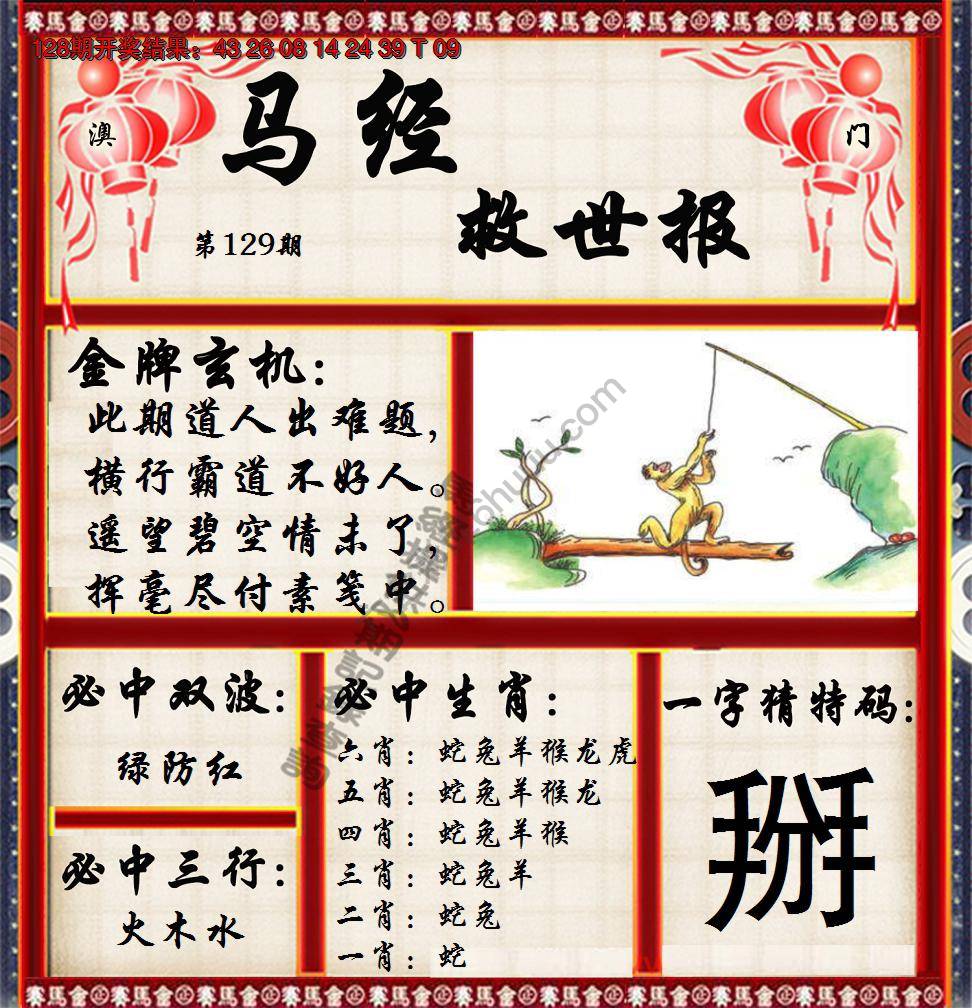 賽馬會
128期开奖结果：43 26 08 14 24 39 T 09
澳
门
马经
救世报
第129期
金牌玄机：
此期道人出难题，
横行霸道不好人。
遥望碧空情未了，
挥毫尽付素笺中。
必中双波：
绿防红
必中三行：
火木水
必中生肖：
六肖：蛇兔羊猴龙虎
五肖：蛇兔羊猴龙
四肖：蛇兔羊猴
三肖：蛇兔羊
二肖：蛇兔
一肖：蛇
一字猜特码：
掰